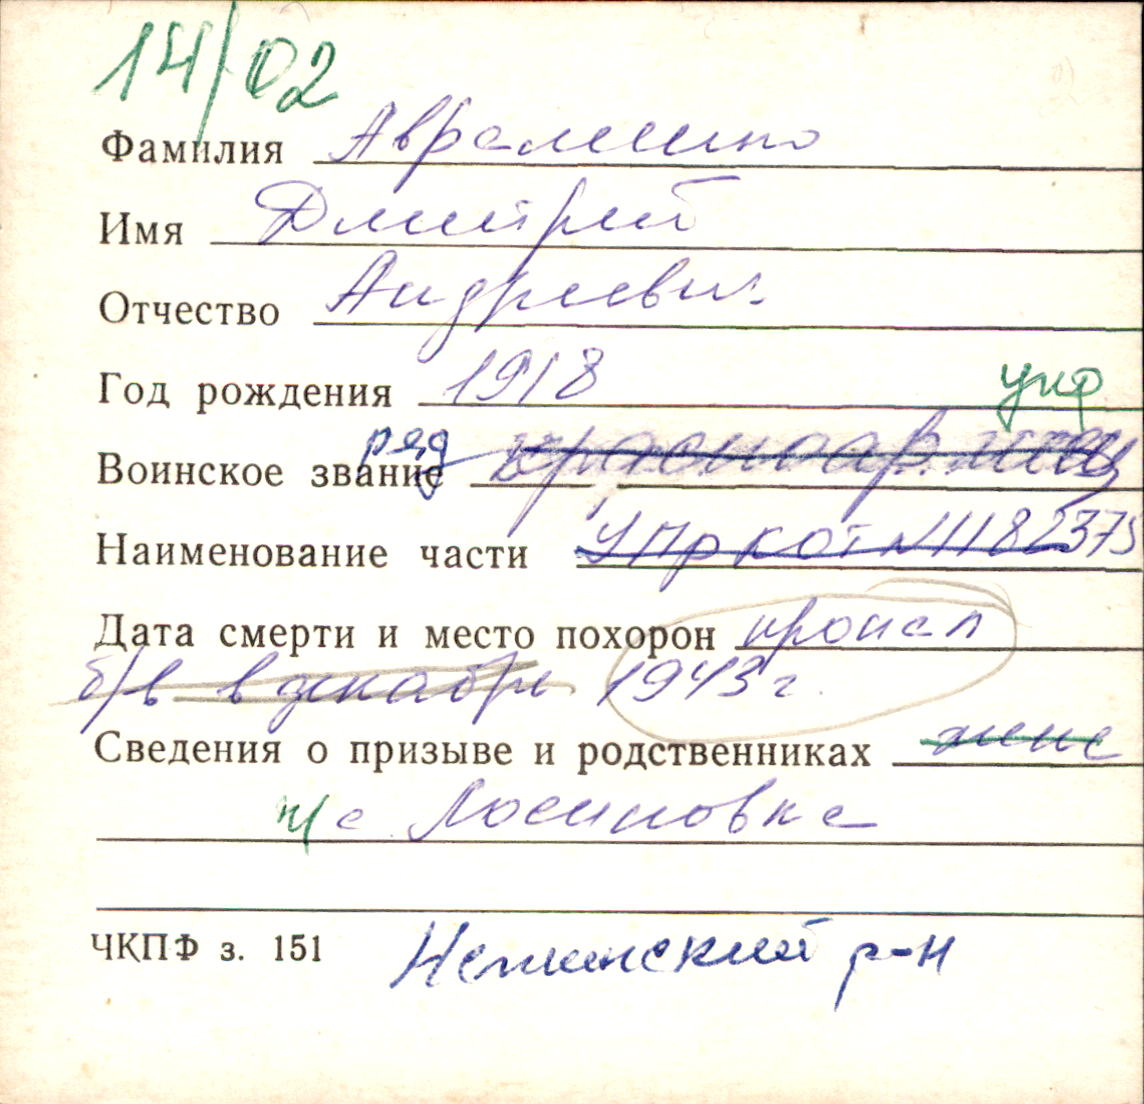 14/02
Фамилия Аврамишно
Имя Дмитрий
Отчество Андреевич
Год рождения 1918 укр
Воинское звание ряд красноармеец
Наименование части УПр кот № 1182375
Дата смерти и место похорон пропал
б/в в декабре 1943 г.
Сведения о призыве и родственниках жене
н/с Лосиновка
ЧКПФ з. 151 Нежинский р-н